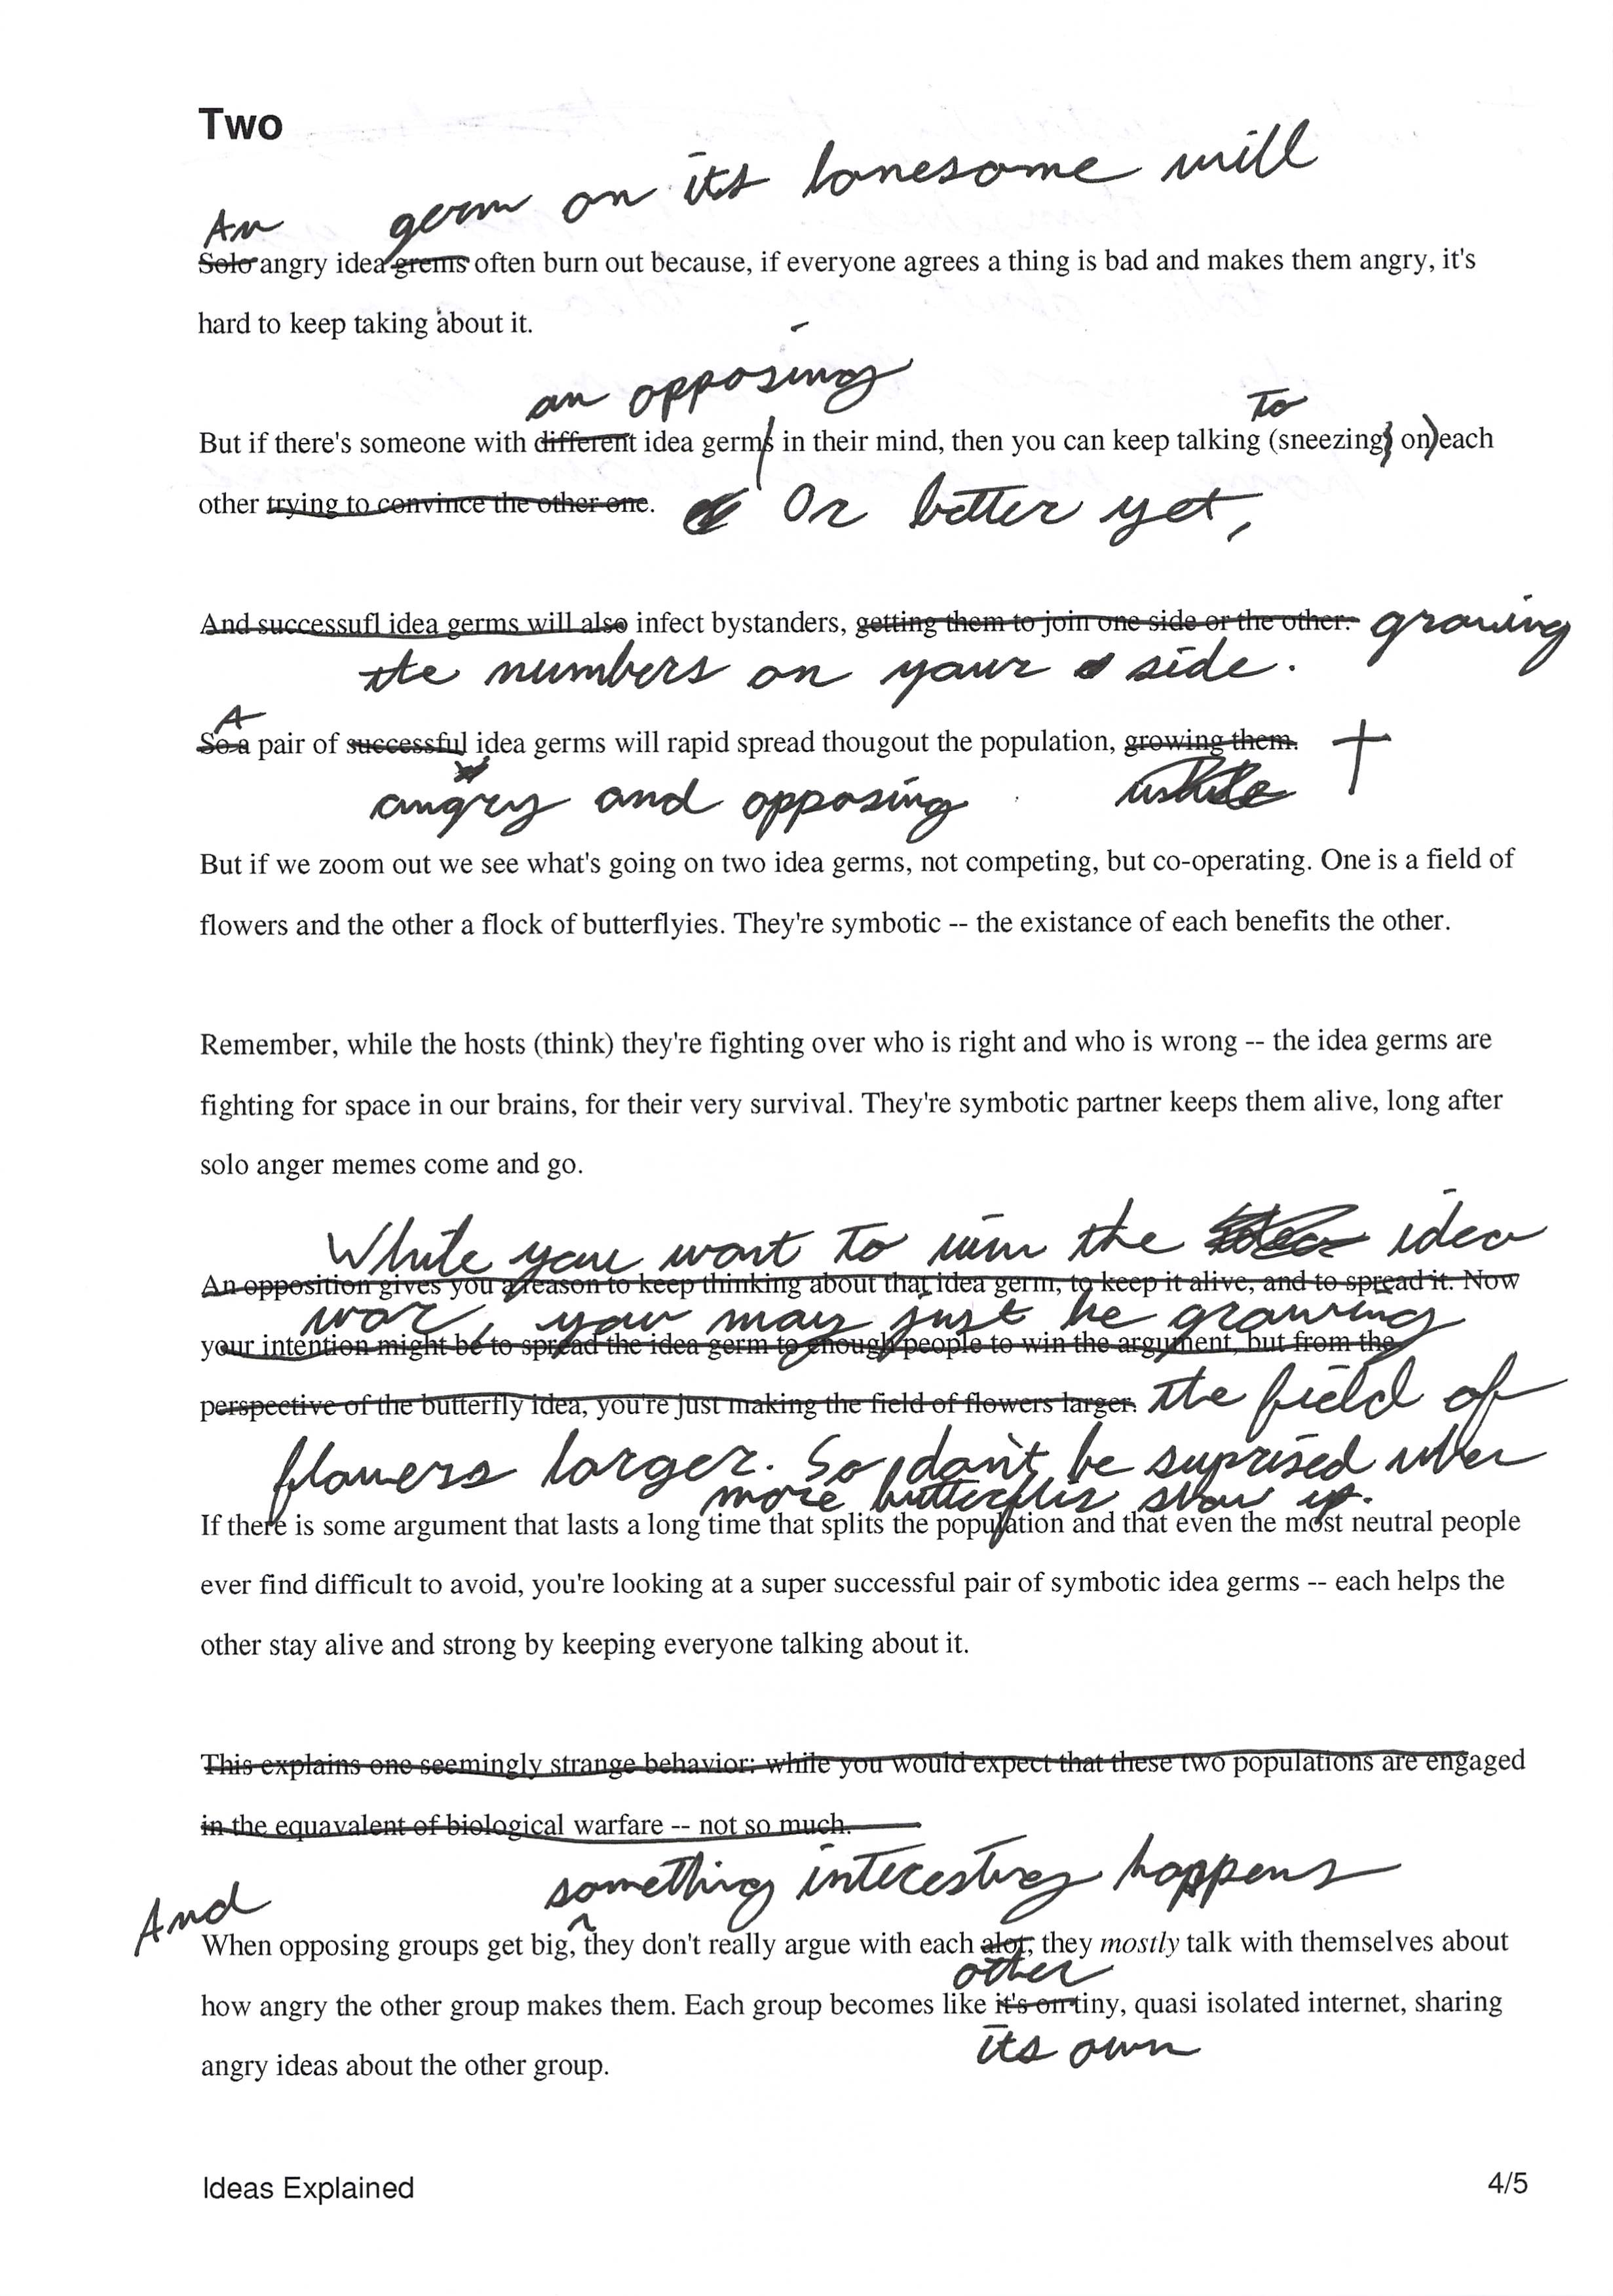 Two
An germ on its lonesome will
Solo angry idea grems often burn out because, if everyone agrees a thing is bad and makes them angry, it's
hard to keep taking about it.
an opposing to
But if there's someone with different idea germs in their mind, then you can keep talking (sneezing) on) each
other trying to convince the other one. Or better yet,
And successufl idea germs will also infect bystanders, getting them to join one side or the other. growing
the numbers on your side.
A
So a pair of successful idea germs will rapid spread thougout the population, growing them.
angry and opposing while
But if we zoom out we see what's going on two idea germs, not competing, but co-operating. One is a field of
flowers and the other a flock of butterflyies. They're symbotic -- the existance of each benefits the other.
Remember, while the hosts (think) they're fighting over who is right and who is wrong -- the idea germs are
fighting for space in our brains, for their very survival. They're symbotic partner keeps them alive, long after
solo anger memes come and go.
While you want to win the idea
An opposition gives you a reason to keep thinking about that idea germ, to keep it alive, and to spread it. Now
war, you may just be growing
your intention might be to spread the idea germ to enough people to win the argument, but from the
perspective of the butterfly idea, you're just making the field of flowers larger. the field of
flowers larger. So don't be suprised when
more butterflies show up.
If there is some argument that lasts a long time that splits the population and that even the most neutral people
ever find difficult to avoid, you're looking at a super successful pair of symbotic idea germs -- each helps the
other stay alive and strong by keeping everyone talking about it.
This explains one seemingly strange behavior: while you would expect that these two populations are engaged
in the equavalent of biological warfare -- not so much.
something interesting happens
And
When opposing groups get big, they don't really argue with each alot, they mostly talk with themselves about
other
how angry the other group makes them. Each group becomes like it's on tiny, quasi isolated internet, sharing
its own
angry ideas about the other group.
Ideas Explained 4/5